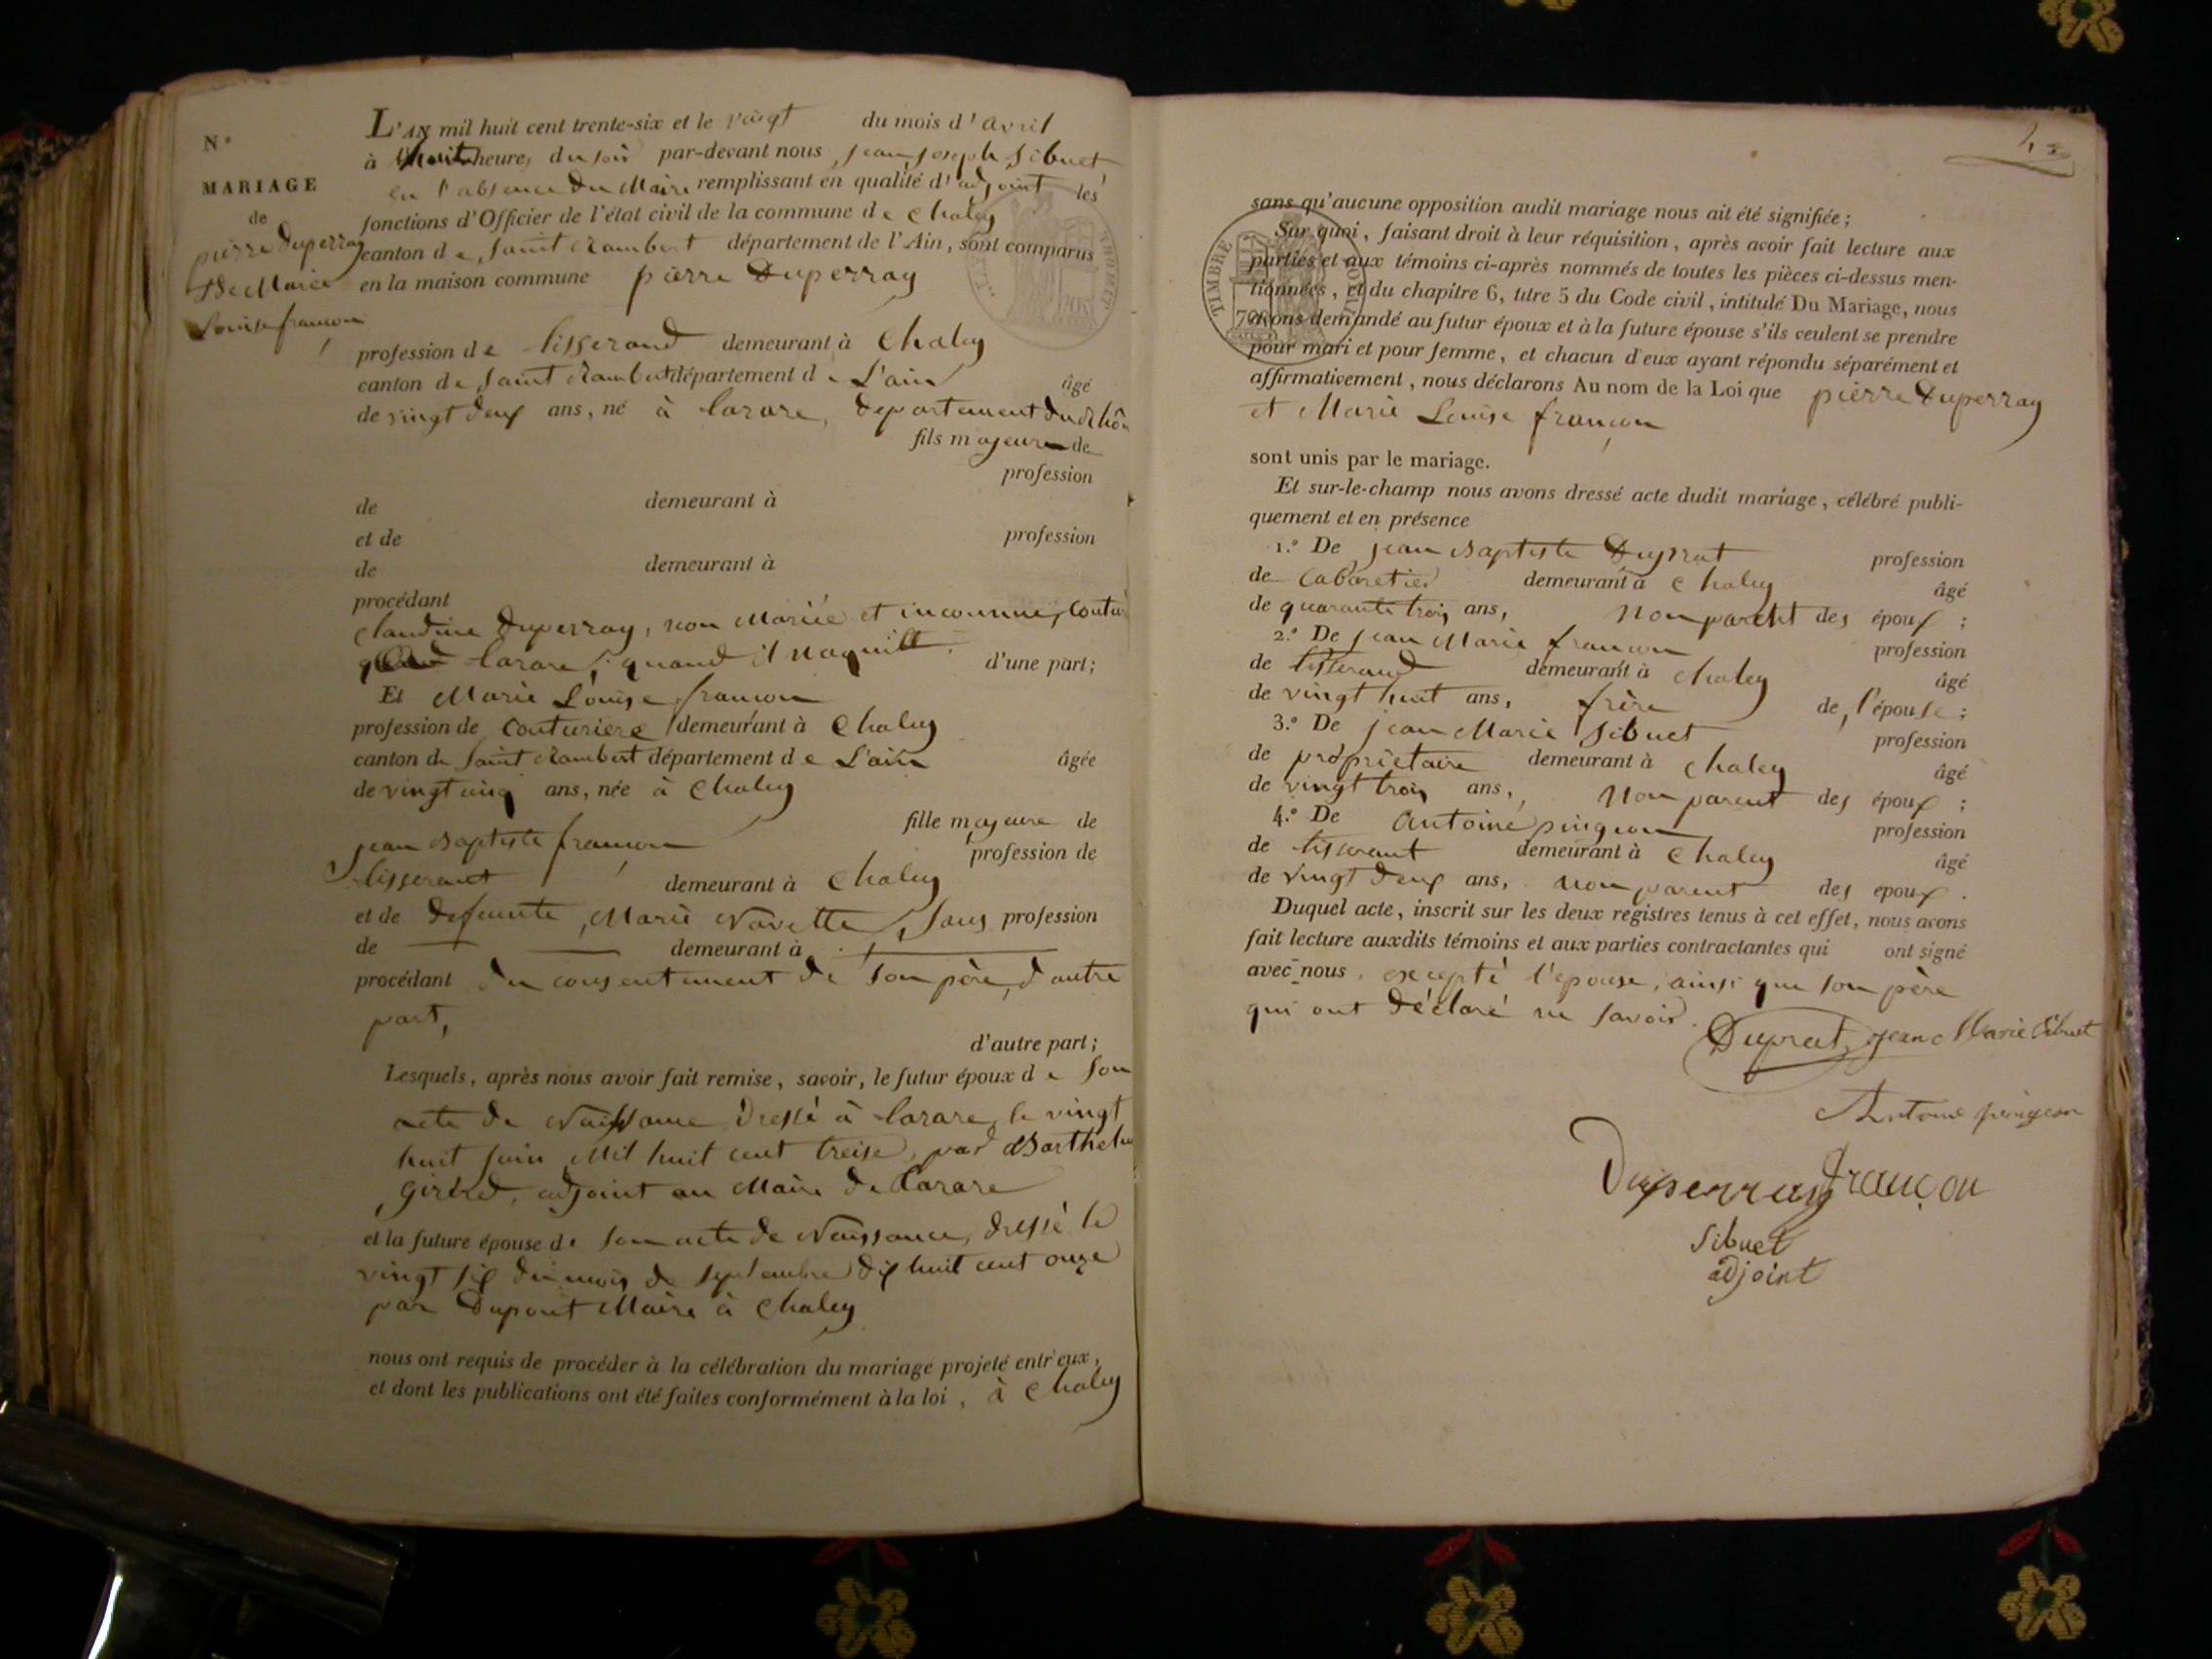 N.°
MARIAGE
de
pierre Duperray
& de Marie
Louise françon
L'AN mil huit cent trente-six et le vingt du mois d'avril
à huit heures du soir par-devant nous jean joseph Sibuet
en l'absence du Maire remplissant en qualité d'adjoint les
fonctions d'Officier de l'état civil de la commune de Chaley
canton de Saint Rambert département de l'Ain, sont comparus
en la maison commune pierre Duperray
profession de tisserand demeurant à Chaley
canton de Saint Rambert département de L'ain âgé
de vingt deux ans, né à tarare, departement du Rhône
fils majeur de
profession
de demeurant à
et de profession
de demeurant à
procédant
Claudine Duperray, non Mariée et inconnue, Coutur
tarare, quand il naquitt. d'une part;
Et Marie Louise françon
profession de Couturiere demeurant à Chaley
canton de Saint Rambert département de L'ain âgée
de vingt cinq ans, née à Chaley
fille majeure de
jean Baptiste françon profession de
tisserant demeurant à Chaley
et de defeunte, Marie Navette, Sans profession
de demeurant à
procédant du consentement de son père, d'autre
part,
d'autre part;
Lesquels, après nous avoir fait remise, savoir, le futur époux de son
acte de Naissance dressé à tarare, le vingt
huit juin Mil huit cent treise, par Barthelm
girerd, adjoint au Maire de tarare
et la future épouse de son acte de Naissance, dressé le
vingt six du mois de Septembre dix huit cent onze
par Dupont Maire à Chaley
nous ont requis de procéder à la célébration du mariage projeté entr'eux,
et dont les publications ont été faites conformément à la loi, à Chaley
sans qu'aucune opposition audit mariage nous ait été signifiée;
Sur quoi, faisant droit à leur réquisition, après avoir fait lecture aux
parties et aux témoins ci-après nommés de toutes les pièces ci-dessus men-
tionnées, et du chapitre 6, titre 5 du Code civil, intitulé Du Mariage, nous
avons demandé au futur époux et à la future épouse s'ils veulent se prendre
pour mari et pour femme, et chacun d'eux ayant répondu séparément et
affirmativement, nous déclarons Au nom de la Loi que pierre Duperray
et Marie Louise françon
sont unis par le mariage.
Et sur-le-champ nous avons dressé acte dudit mariage, célébré publi-
quement et en présence
1.° De jean Baptiste Duprat profession
de Cabaretier demeurant à Chaley âgé
de quarante trois ans, non parent des époux;
2.° De jean Marie françon profession
de tisserand demeurant à Chaley âgé
de vingt huit ans, frère de l'épouse;
3.° De jean Marie Sibuet profession
de propriètaire demeurant à Chaley âgé
de vingt trois ans, Non parent des époux;
4.° De Antoine pingeon profession
de tisserant demeurant à Chaley âgé
de vingt deux ans, non parent des epoux.
Duquel acte, inscrit sur les deux registres tenus à cet effet, nous avons
fait lecture auxdits témoins et aux parties contractantes qui ont signé
avec nous. excepté l'epouse, ainsi que son père
qui ont déclaré ne savoir.
Duprat jean Marie Sibuet
Antoine pingeon
Duperray françon
Sibuet
adjoint
TIMBRE ROYAL